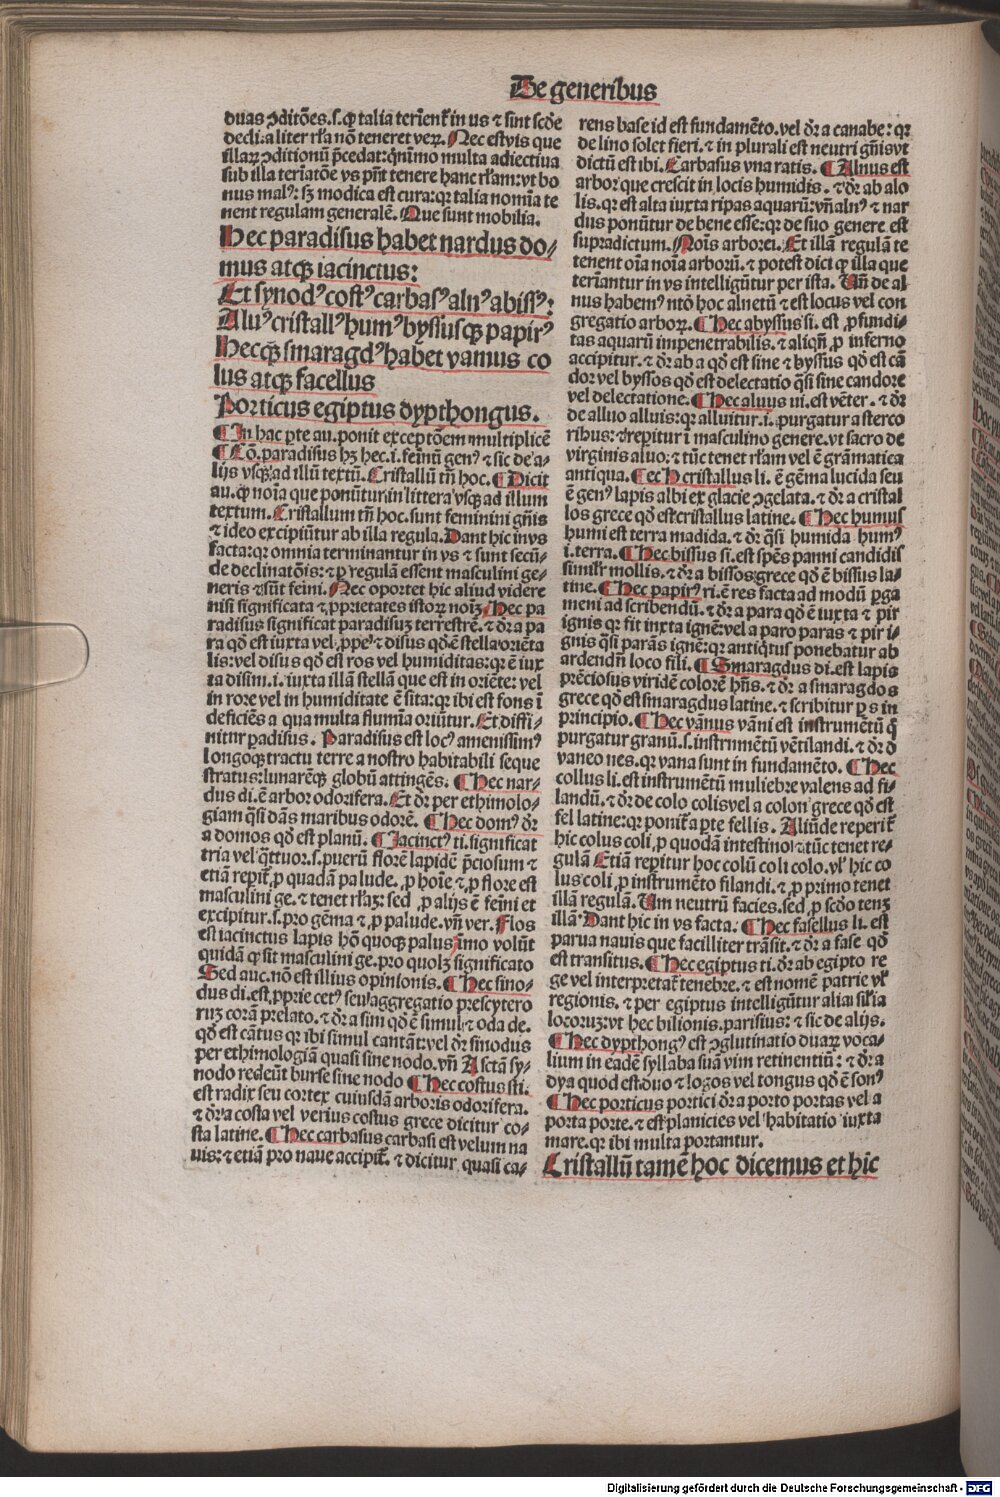 De generibus
duas ɔditões.s.ꝙ talia terīent᷑ in us ⁊ sint scd̄e
decli.aliter rl̄a nō teneret veꝝ. Nec est vis que
illaꝝ ɔditionū p̄cedat:qm̄īmo multa adiectiua
sub illa teriatōe vs pn̄t tenere hanc rl̄am:vt bo
nus malꝰ:sꝫ modica est cura:qꝛ talia nomīa te
nent regulam generalē. Que sunt mobilia.
Hec paradisus habet nardus do-
mus atqꝫ iacinctus:
Et synodꝰ costꝰ carbasꝰ alnꝰ abissꝰ:
Aluꝰ cristallꝰ humꝰ byssusqꝫ papirꝰ
Hecqꝫ smaragdꝰ habet vannus co
lus atqꝫ facellus
Porticus egiptus dypthongus.
¶ In hac ꝑte au. ponit exceptōem multiplicē
¶ Cō. paradisus hꝫ hec.i.feīnū genꝰ ⁊ sic de a-
lijs vsqꝫ ad illū textū. Cristallū tn̄ hoc. ¶ Dicit
au.ꝙ noīa que ponūtur in littera vsqꝫ ad illum
textum. Cristallum tn̄ hoc. sunt feminini gn̄is
⁊ ideo excipiūtur ab illa regula. Dant hic in vs
facta:qꝛ omnia terminantur in vs ⁊ sunt secū-
de declinatōis:⁊ ꝑ regulā essent masculini ge-
neris ⁊ sūt feini. Nec oportet hic aliud videre
nisi significata ⁊ ꝓprietates istoꝝ noīꝫ Hec pa
radisus significat paradisuꝫ terrestrē. ⁊ dr̄ a pa
ra qd̄ est iuxta vel ꝓpe ⁊ disus qd̄ ē stella oriēta
lis:vel disus qd̄ est ros vel humiditas:qꝛ ē iux
ta disim.i.iuxta illā stellā que est in oriēte: vel
in rore vel in humiditate ē sita:qꝛ ibi est fons ī
deficiēs a qua multa flumīa oriūtur. Et diffi-
nitur ꝑadisus. Paradisus est locꝰ amenissimꝰ
longoqꝫ tractu terre a nostro habitabili seque
stratus:lunarēqꝫ globū attingēs. ¶ Hec nar-
dus di.ē arbor odorifera. Et dr̄ per ethimolo-
giam q̄si dās maribus odorē. ¶ Hec domꝰ dr̄
a domos qd̄ est planū. ¶ Jacinctꝰ ti.significat
tria vel q̄ttuor.s.puerū florē lapidē p̄ciosum ⁊
etiā reꝑit᷑ ꝓ quadā palude.ꝓ hoīe ⁊ ꝓ flore est
masculini ge.⁊ tenet rl̄aꝫ: sed ꝓ alijs ē feīni et
excipitur.s.pro gēma ⁊ ꝓ palude.vn̄ ver. Flos
est iacinctus lapis hō quoqꝫ palus īmo volūt
quidā ꝙ sit masculini ge.pro quolꝫ significato
Sed auc.nō est illius opinionis. ¶ Hec sino-
dus di.est ꝓprie cetꝰ seu aggregatio prescytero
ruꝫ corā prelato.⁊ dr̄ a sim qd̄ ē simul ⁊ oda de.
qd̄ est cātus qꝛ ibi simul cantāt:vel dr̄ sinodus
per ethimologiā quasi sine nodo.vn̄ Ad sctā sy-
nodo redeūt burse sine nodo ¶ Hec costus sti.
est radix seu cortex cuiusdā arboris odorifera.
⁊ dr̄ a costa vel verius costus grece dicitur co-
sta latine. ¶ Hec carbasus carbasi est velum na
uis:⁊ etiā pro naue accipit᷑. ⁊ dicitur quasi ca-
rens base id est fundamēto.vel dr̄ a canabe: qꝛ
de lino solet fieri.⁊ in plurali est neutri gn̄is vt
dictū est ibi. Carbasus vna ratis. ¶ Alnus est
arbor que crescit in locis humidis. ⁊ dr̄ ab alo
lis.qꝛ est alta iuxta ripas aquarū:vn̄ alnꝰ ⁊ nar
dus ponūtur de bene esse:qꝛ de suo genere est
supradictum. Noīs arborei. Et illā regulā te
tenent oīa noīa arborū.⁊ potest dici ꝙ illa que
teriantur in vs intelligūtur per ista. Un̄ de al
nus habemꝰ ntō hoc alnetū ⁊ est locus vel con
gregatio arboꝝ. ¶ Hec abyssus si. est ꝓfundi-
tas aquarū impenetrabilis.⁊ aliqn̄ ꝓ inferno
accipitur.⁊ dr̄ ab a qd̄ est sine ⁊ byssus qd̄ est cā
dor vel byssos qd̄ est delectatio q̄si sine candore
vel delectatione. ¶ Hec aluus ui.est vēter. ⁊ dr̄
de alluo alluis:qꝛ alluitur.i.purgatur a sterco
ribus:⁊ repitur i masculino genere.vt sacro de
virginis aluo:⁊ tūc tenet rl̄am vel ē grāmatica
antiqua. ¶ Hec cristallus li. ē gēma lucida seu
ē genꝰ lapis albi ex glacie ɔgelata.⁊ dr̄ a cristal
los grece qd̄ est cristallus latine. ¶ Hec humus
humi est terra madida.⁊ dr̄ q̄si humida humꝰ
i.terra. ¶ Hec bissus si.est spēs panni candidis
similr̄ mollis.⁊ dr̄ a bissos grece qd̄ ē bissus la-
tine. ¶ Hec papirꝰ ri.ē res facta ad modū ꝑga
meni ad scribendū.⁊ dr̄ a para qd̄ ē iuxta ⁊ pir
ignis qꝛ fit iuxta ignē:vel a paro paras ⁊ pir i-
gnis q̄si parās ignē:qꝛ antiqͥtus ponebatur ab
ardendū loco fili. ¶ Smaragdus di.est lapis
prēciosus viridē colorē hn̄s.⁊ dr̄ a smaragdos
grece qd̄ est smaragdus latine.⁊ scribitur ꝑ s in
principio. ¶ Hec vānus vāni est instrumētū ꝙ̄
purgatur granū.s.instrumētū vētilandi.⁊ dr̄ d
vaneo nes.qꝛ vana sunt in fundamēto. ¶ Hec
collus li.est instrumētū muliebre valens ad fi-
landū.⁊ dr̄ de colo colis vel a colon grece qd̄ est
fel latine:qꝛ ponit᷑ a ꝑte fellis. Aliūde reperit᷑
hic colus coli ꝓ quodā intestino ⁊ tūc tenet re-
gulā Etiā repitur hoc colū coli colo.vl̓ hic co
lus coli ꝓ instrumēto filandi.⁊ ꝓ primo tenet
illā regulā. Um neutrū facies.sed ꝓ scd̄o tenꝫ
illā Dant hic in vs facta. ¶ Hec fasellus li. est
parua nauis que faciliter trāsit.⁊ dr̄ a fase qd̄
est transitus. ¶ Hec egiptus ti.dr̄ ab egipto re
ge vel interpretat᷑ tenebre.⁊ est nomē patrie vl̓
regionis.⁊ per egiptus intelligūtur alia sil̓ia
locoruꝫ:vt hec bilionis.parisius:⁊ sic de alijs.
¶ Hec dypthongꝰ est ɔglutinatio duaꝝ voca-
lium in eadē syllaba suā vim retinentiū: ⁊ dr̄ a
dya quod est duo ⁊ logos vel tongus qd̄ ē sonꝰ
¶ Hec porticus portici dr̄ a porto portas vel a
porta porte.⁊ est planicies vel habitatio iuxta
mare.qꝛ ibi multa portantur.
Cristallū tamē hoc dicemus et hic
Digitalisierung gefördert durch die Deutsche Forschungsgemeinschaft - DFG